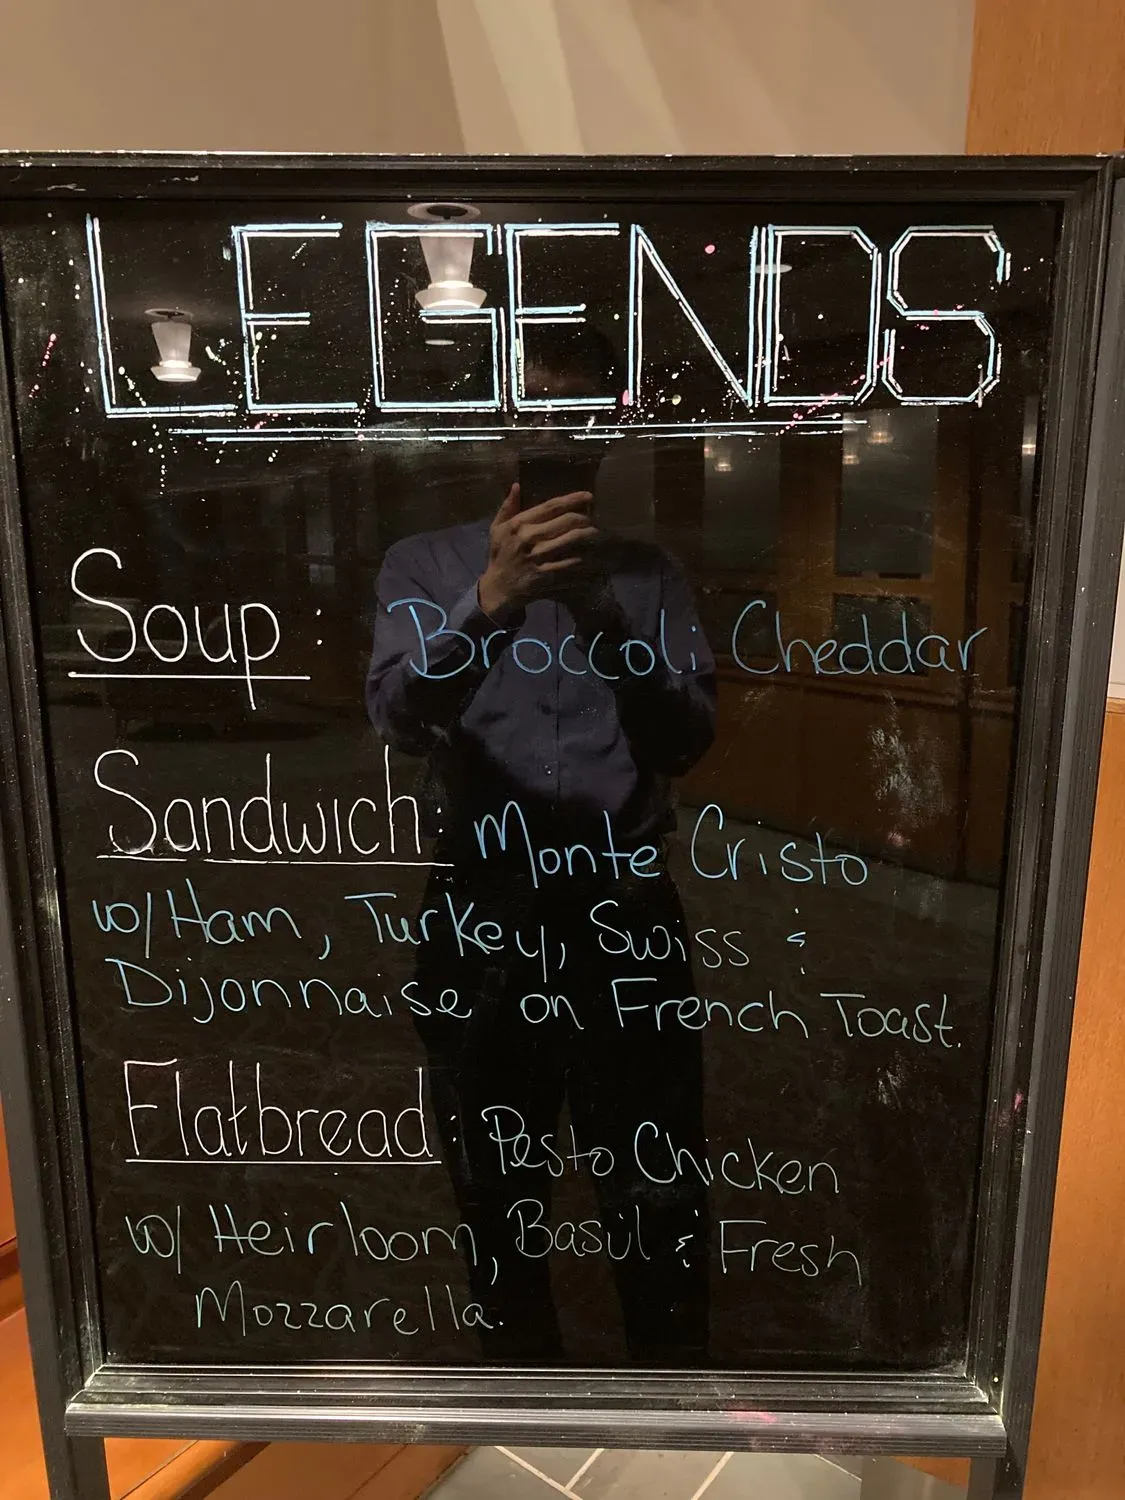 LEGENDS
Soup: Broccoli Cheddar
Sandwich: Monte Cristo
w/ Ham, Turkey, Swiss &
Dijonnaise on French Toast.
Flatbread: Pesto Chicken
w/ Heirloom, Basil & Fresh
Mozzarella.